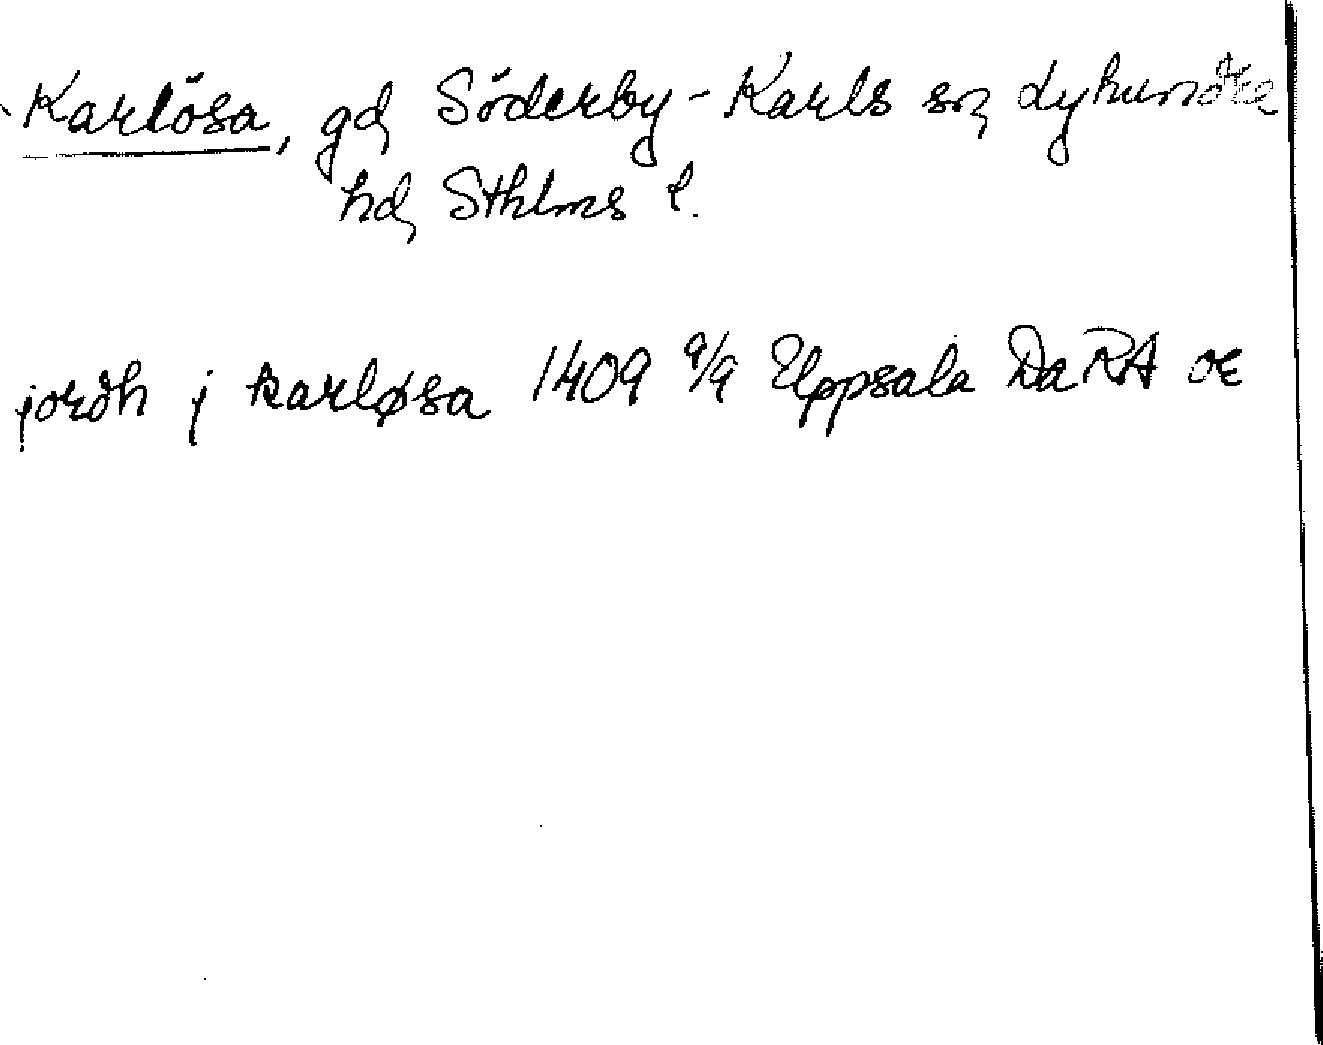 Karlösa, gd, Söderby-Karls sn, Lyhundra
hd, Sthlms l.
jordh j karløsa 1409 9/9 Uppsala Da RA or